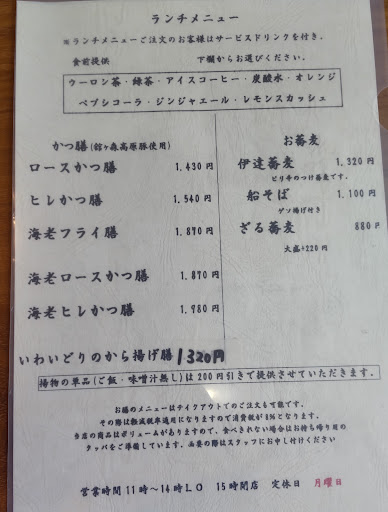 ランチメニュー
※ランチメニューご注文のお客様はサービスドリンクを付き。
食前提供 下欄からお選びください。
ウーロン茶・緑茶・アイスコーヒー・炭酸水・オレンジ
ペプシコーラ・ジンジャエール・レモンスカッシュ
かつ膳(舘ヶ森高原豚使用)
ロースかつ膳 1.430円
ヒレかつ膳 1.540円
海老フライ膳 1.870円
海老ロースかつ膳 1.870円
海老ヒレかつ膳 1.980円
お蕎麦
伊達蕎麦 1.320円
ピリ辛のつけ蕎麦です。
船そば 1.100円
ゲソ揚げ付き
ざる蕎麦 880円
大盛+220円
いわいどりのから揚げ膳 1320円
揚物の単品(ご飯・味噌汁無し)は200円引きで提供させていただきます。
お膳のメニューはテイクアウトでのご注文も可能です。
その際は軽減税率適用になりますので消費税が8%となります。
当店の商品はボリュームがありますので、食べきれない場合はお持ち帰り用の
タッパをご準備しています。必要の際はスタッフにお申し付けください
営業時間11時~14時LO 15時閉店 定休日 月曜日